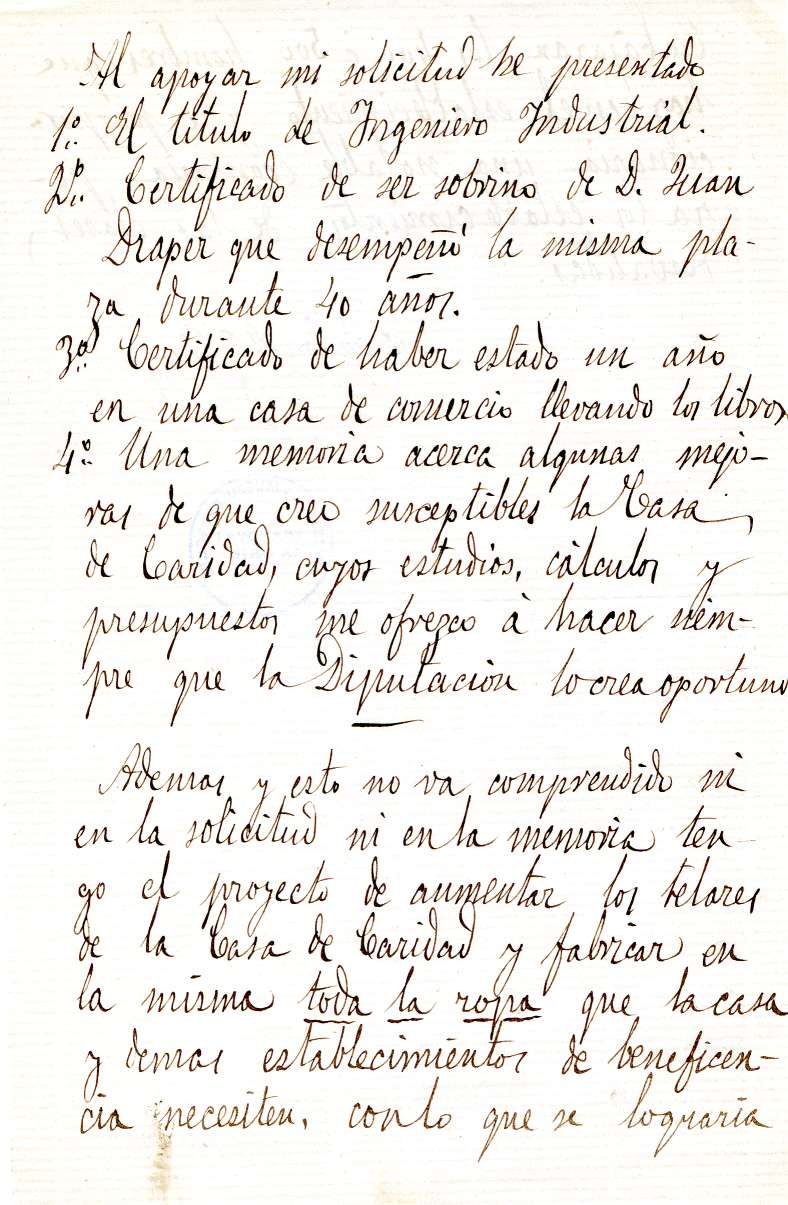 Al apoyar mi solicitud he presentado
1º. El titulo de Ingeniero Industrial.
2º. Certificado de ser sobrino de D. Juan
Draper que desempeñó la misma pla-
za durante 40 años.
3º. Certificado de haber estado un año
en una casa de comercio llevando los libros
4º. Una memoria acerca algunas mejo-
ras de que creo susceptibles la Casa
de Caridad, cuyos estudios, cálculos y
presupuestos me ofrezco à hacer siem-
pre que la Diputación lo crea oportuno
Ademas y esto no va comprendido ni
en la solicitud ni en la memoria ten-
go el proyecto de aumentar los telares
de la Casa de Caridad y fabricar en
la misma toda la ropa que la casa
y demas establecimientos de beneficen-
cia necesiten, con lo que se lograria